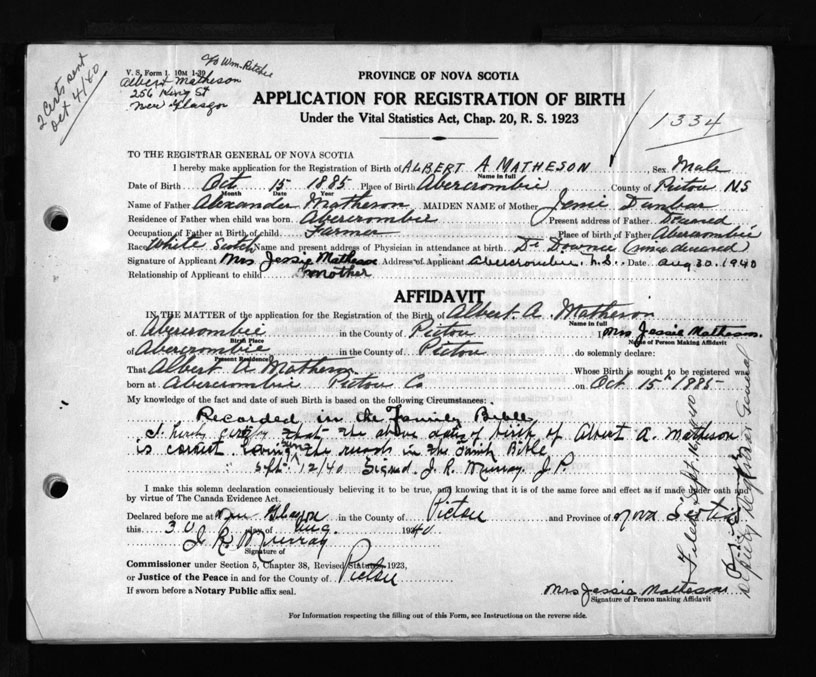 2 Certs sent
Oct 4/40
V. S. Form 1. 10M 1-39
c/o Wm. Ritchie
Albert Matheson
256 King St
New Glasgow
PROVINCE OF NOVA SCOTIA
APPLICATION FOR REGISTRATION OF BIRTH
Under the Vital Statistics Act, Chap. 20, R. S. 1923
1334
TO THE REGISTRAR GENERAL OF NOVA SCOTIA
I hereby make application for the Registration of Birth of ALBERT A MATHESON Sex Male
Name in full
Date of Birth Oct 15 1885 Place of Birth Abercrombie County of Pictou N S
Month Date Year
Name of Father Alexander Matheson MAIDEN NAME of Mother Jessie Dunbar
Residence of Father when child was born Abercrombie Present address of Father Deceased
Occupation of Father at Birth of child Farmer Place of birth of Father Abercrombie
Race White Scotch Name and present address of Physician in attendance at birth Dr (since deceased)
Signature of Applicant Mrs Jessie Matheson Address of Applicant Abercrombie, N.S. Date Aug 30. 1940
Relationship of Applicant to child Mother
AFFIDAVIT
IN THE MATTER of the application for the Registration of the Birth of Albert. A. Matheson
Name in full
of Abercrombie in the County of Pictou I Mrs Jessie Matheson.
Birth Place Name of Person Making Affidavit
of Abercrombie in the County of Pictou do solemnly declare:
Present Residence
That Albert A Matheson Whose Birth is sought to be registered was
born at Abercrombie Pictou Co on Oct 15th 1885
My knowledge of the fact and date of such Birth is based on the following Circumstances:
Recorded in the Family Bible
I hereby certify that the above date of birth of Albert A. Matheson
is correct seen the records in the family Bible
Sept. 12/40 Signed. J. R. Murray. J.P.
I make this solemn declaration conscientiously believing it to be true, and knowing that it is of the same force and effect as if made under oath and
by virtue of The Canada Evidence Act.
Declared before me at New Glasgow in the County of Pictou and Province of Nova Scotia
this 30 day of Aug. 1940.
J. R. Murray
Signature of
Commissioner under Section 5, Chapter 38, Revised Statutes 1923,
or Justice of the Peace in and for the County of Pictou
If sworn before a Notary Public affix seal.
Mrs Jessie Matheson
Signature of Person making Affidavit
For Information respecting the filling out of this Form, see Instructions on the reverse side.
Filed Sept. 1940
Deputy Registrar General